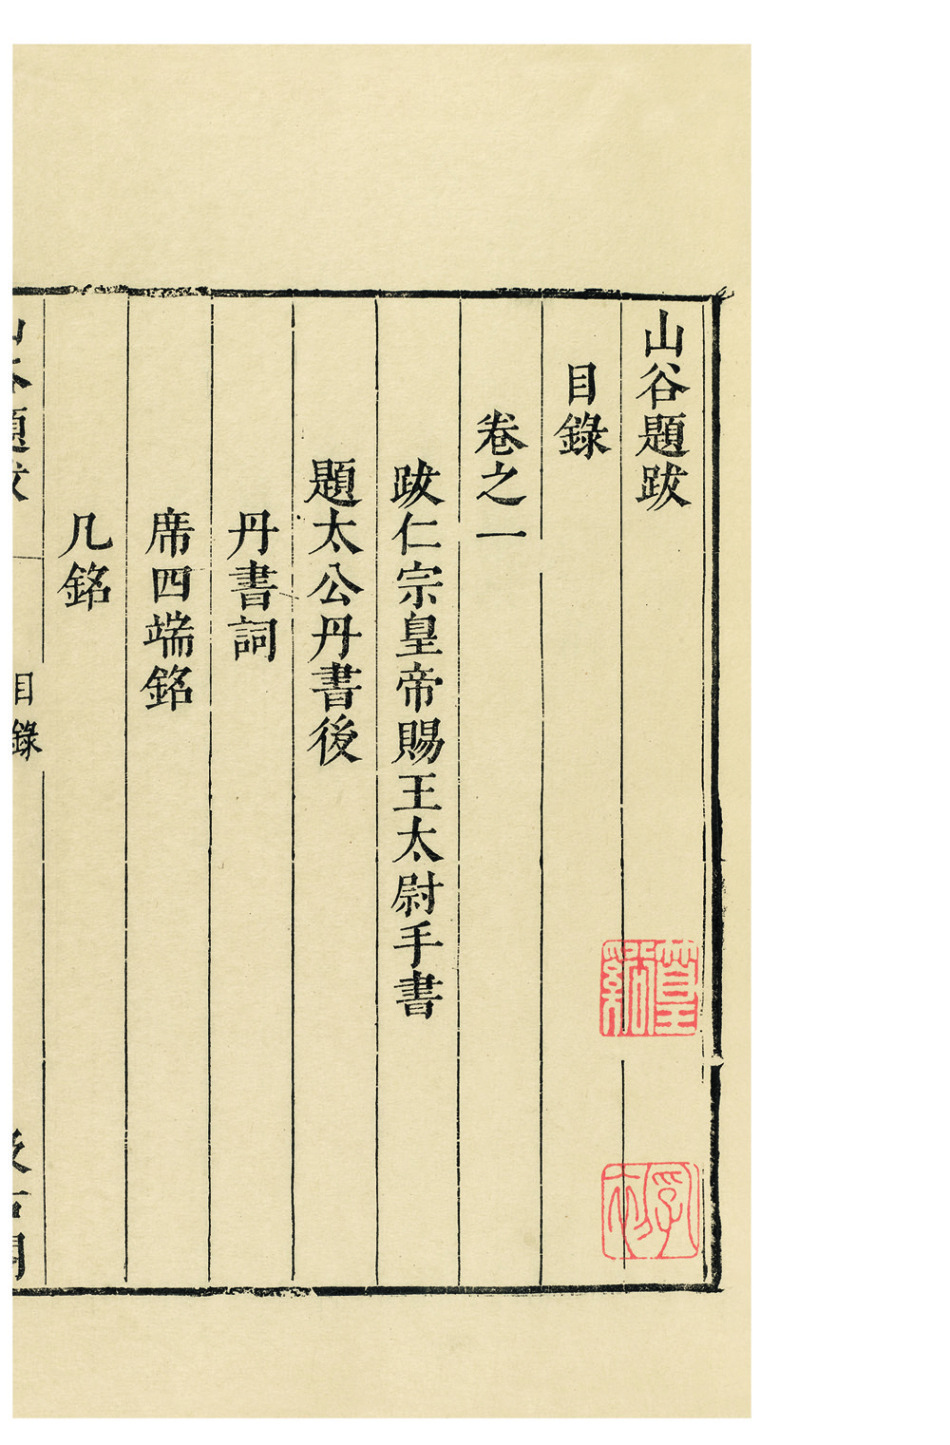 山谷題跋
目錄
卷之一
跋仁宗皇帝賜王太尉手書
題太公丹書後
丹書詞
席四端銘
几銘
山谷題跋 目錄 汲古閣